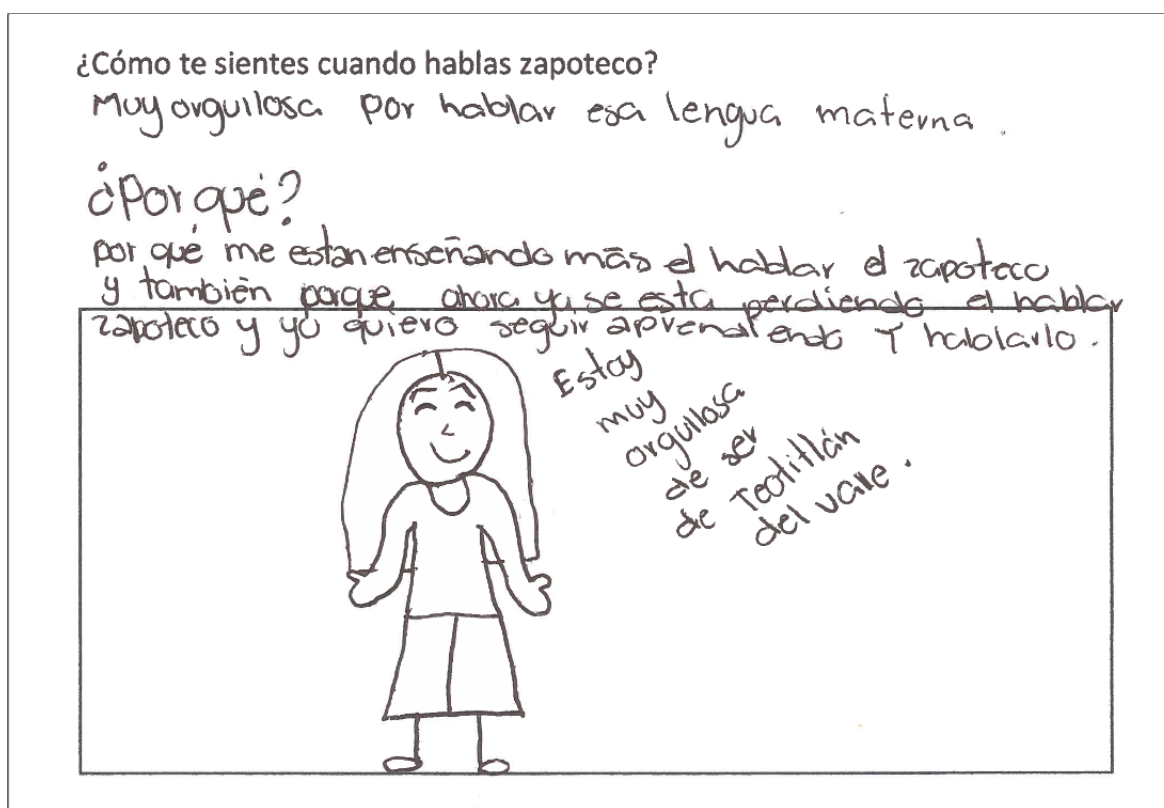 ¿Cómo te sientes cuando hablas zapoteco?
Muy orgullosa por hablar esa lengua materna.
¿Por qué?
por qué me estan enseñando más el hablar el zapoteco
y también porque ahora ya se esta perdiendo el hablar
zapoteco y yo quiero seguir aprendiendo Y hablarlo.
Estoy
muy
orgullosa
de ser
de Teotitlán
del valle.